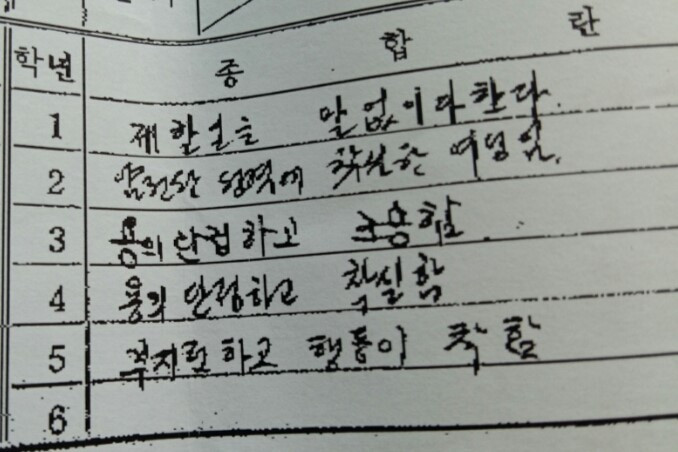 학년 종 합 란
1 제 할 일을 말없이 다 한다.
2 얌전한 성격에 착실한 여성임.
3 용의 단정하고 조용함.
4 용의 단정하고 착실함
5 부지런하고 행동이 착함
6